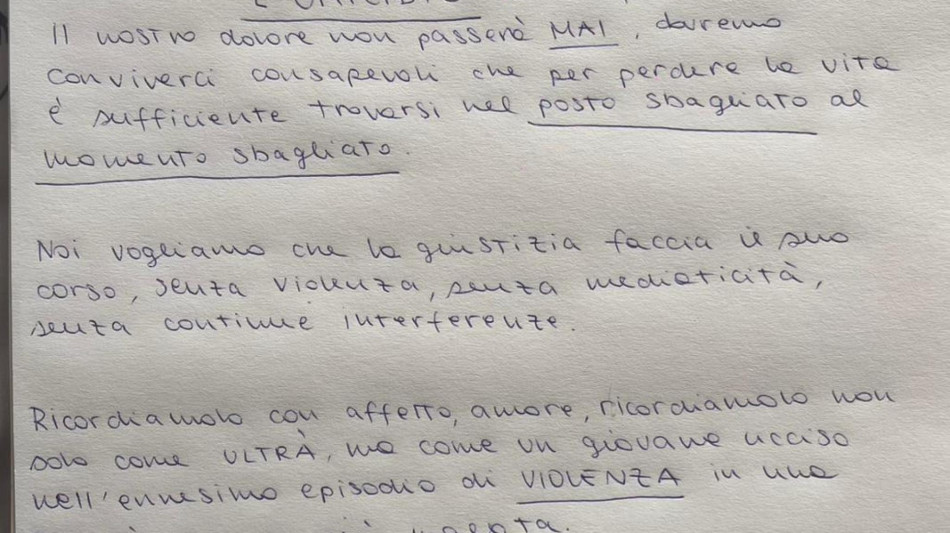 Il nostro dolore non passerà MAI, dovremo
conviverci consapevoli che per perdere la vita
è sufficiente trovarsi nel posto sbagliato al
momento sbagliato.
Noi vogliamo che la giustizia faccia il suo
corso, senza violenza, senza mediaticità,
senza continue interferenze.
Ricordiamolo con affetto, amore, ricordiamolo non
solo come ULTRÀ, ma come un giovane ucciso
nell'ennesimo episodio di VIOLENZA in una